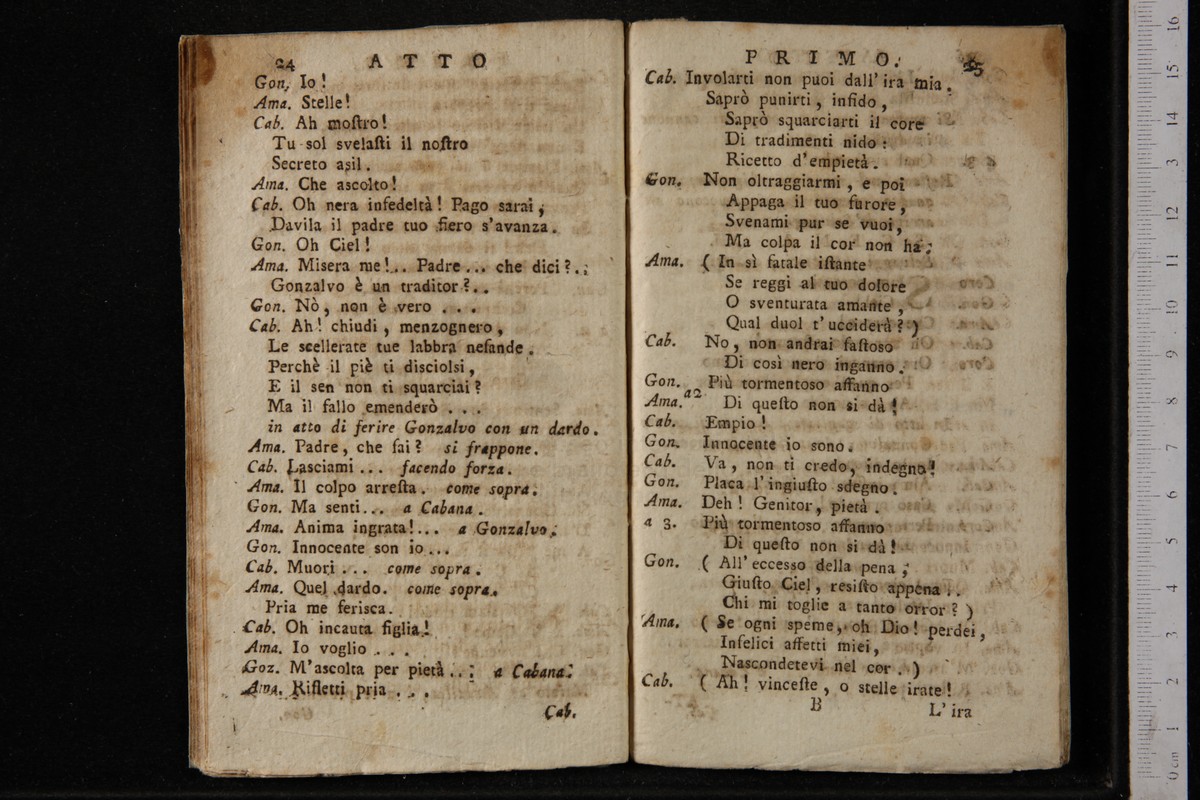 24 ATTO
Gon. Io!
Ama. Stelle!
Cab. Ah moſtro!
Tu sol svelaſti il noſtro
Secreto asil.
Ama. Che ascolto!
Cab. Oh nera infedeltà! Pago sarai;
Davila il padre tuo fiero s'avanza.
Gon. Oh Ciel!
Ama. Misera me!.. Padre... che dici?..
Gonzalvo è un traditor?..
Gon. Nò, non è vero ...
Cab. Ah! chiudi, menzognero,
Le scellerate tue labbra nefande.
Perchè il piè ti disciolsi,
E il sen non ti squarciai?
Ma il fallo emenderò ...
in atto di ferire Gonzalvo con un dardo.
Ama. Padre, che fai? si frappone.
Cab. Lasciami ... facendo forza.
Ama. Il colpo arreſta. come sopra.
Gon. Ma senti... a Cabana.
Ama. Anima ingrata!... a Gonzalvo.
Gon. Innocente son io...
Cab. Muori ... come sopra.
Ama. Quel dardo. come sopra.
Pria me ferisca.
Cab. Oh incauta figlia!
Ama. Io voglio ...
Goz. M'ascolta per pietà... a Cabana.
Ama. Rifletti pria ...
Cab.
PRIMO. 25
Cab. Involarti non puoi dall'ira mia.
Saprò punirti, infido,
Saprò squarciarti il core
Di tradimenti nido:
Ricetto d'empietà.
Gon. Non oltraggiarmi, e poi
Appaga il tuo furore,
Svenami pur se vuoi,
Ma colpa il cor non ha;
Ama. ( In sì fatale iſtante
Se reggi al tuo dolore
O sventurata amante,
Qual duol t'ucciderà? )
Cab. No, non andrai faſtoso
Di così nero inganno.
Gon. Più tormentoso affanno
a2
Ama. Di queſto non si dà!
Cab. Empio!
Gon. Innocente io sono.
Cab. Va, non ti credo, indegno!
Gon. Placa l'ingiuſto sdegno.
Ama. Deh! Genitor, pietà.
a 3. Più tormentoso affanno
Di queſto non si dà!
Gon. ( All'eccesso della pena;
Giuſto Ciel, resiſto appena..
Chi mi toglie a tanto orror? )
Ama. ( Se ogni speme, oh Dio! perdei,
Infelici affetti miei,
Nascondetevi nel cor. )
Cab. ( Ah! vinceſte, o stelle irate!
B L'ira
16
15
14
13
12
11
10
9
8
7
6
5
4
3
2
1
0 cm